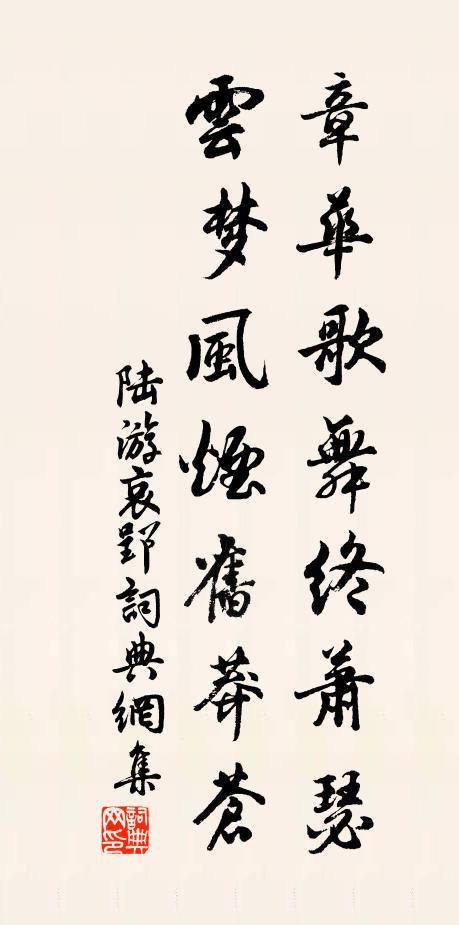 章華歌舞終蕭瑟
雲梦風煙舊莽蒼
陆游哀郢詞典網集
詞典网印